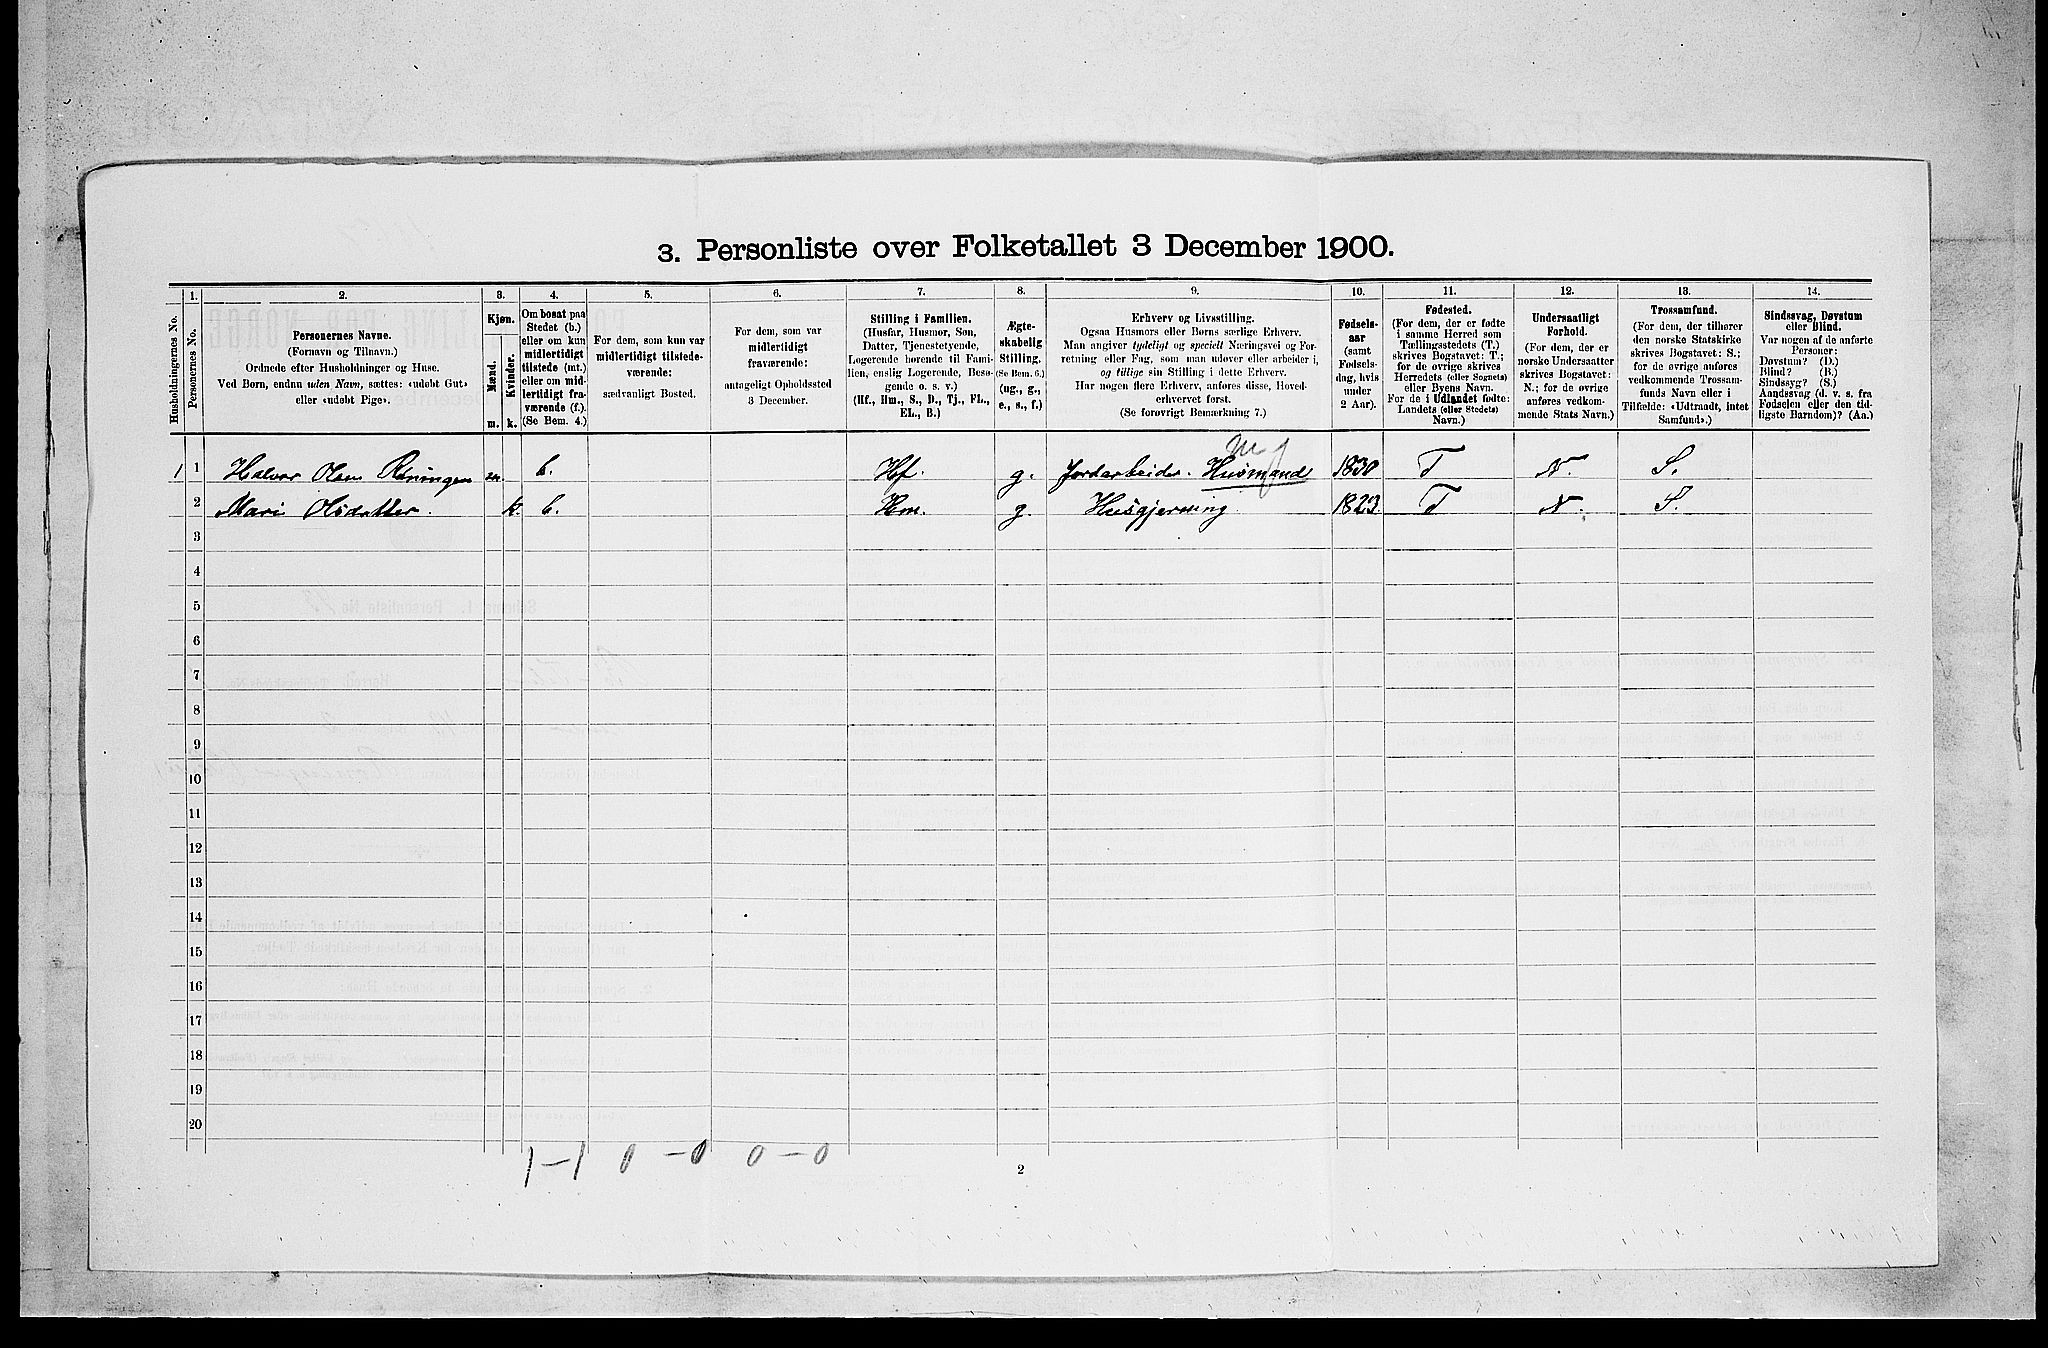 3. Personliste over Folketallet 3 December 1900.
Husholdningernes No.
1.
Personernes No.
2.
Personernes Navne.
(Fornavn og Tilnavn.)
Ordnede efter Husholdninger og Huse.
Ved Børn, endnu uden Navn, sættes: «udøbt Gut»
eller «udøbt Pige».
3.
Kjøn.
Mænd.
Kvinder.
m. k.
4.
Om bosat paa
Stedet (b.)
eller om kun
midlertidigt
tilstede (mt.)
eller om mid-
lertidigt fra-
værende (f.).
(Se Bem. 4.)
5.
For dem, som kun var
midlertidigt tilstede-
værende:
sædvanligt Bosted.
6.
For dem, som var
midlertidigt
fraværende:
antageligt Opholdssted
3 December.
7.
Stilling i Familien.
(Husfar, Husmor, Søn,
Datter, Tjenestetyende,
Logerende hørende til Fami-
lien, enslig Logerende, Besø-
gende o. s. v.)
(Hf., Hm., S., D., Tj., FL.,
EL., B.)
8.
Ægte-
skabelig
Stilling.
(Se Bem. 6.)
(ug., g.,
e., s., f.)
9.
Erhverv og Livsstilling.
Ogsaa Husmors eller Børns særlige Erhverv.
Man angiver tydeligt og specielt Næringsvei og For-
retning eller Fag, som man udøver eller arbeider i,
og tillige sin Stilling i dette Erhverv.
Har nogen flere Erhverv, anføres disse, Hoved-
erhvervet først.
(Se forøvrigt Bemærkning 7.)
10.
Fødsels-
aar
(samt
Fødsels-
dag, hvis
under
2 Aar).
11.
Fødested.
(For dem, der er fødte
i samme Herred som
Tællingsstedets (T.)
skrives Bogstavet: T.;
for de øvrige skrives
Herredets (eller Sognets)
eller Byens Navn.
For de i Udlandet fødte:
Landets (eller Stedets)
Navn.)
12.
Undersaatligt
Forhold.
(For dem, der er
norske Undersaatter
skrives Bogstavet:
N.; for de øvrige
anføres vedkom-
mende Stats Navn.)
13.
Trossamfund.
(For dem, der tilhører
den norske Statskirke
skrives Bogstavet: S.;
for de øvrige anføres
vedkommende Trossam-
funds Navn eller i
Tilfælde: «Udtraadt, intet
Samfund».)
14.
Sindssvag, Døvstum
eller Blind.
Var nogen af de anførte
Personer:
Døvstum? (D.)
Blind? (B.)
Sindssyg? (S.)
Aandssvag (d. v. s. fra
Fødselen eller den tid-
ligste Barndom)? (Aa.)
1 1 Halvor Olsen m. b. Hf. g. Jordarbeider. Husmand 1830 T N. S.
2 Mari Olsdatter. k. b. Hm. g. Husgjerning. 1823 T N. S.
3
4
5
6
7
8
9
10
11
12
13
14
15
16
17
18
19
20
1–1 0–0 0–0
2